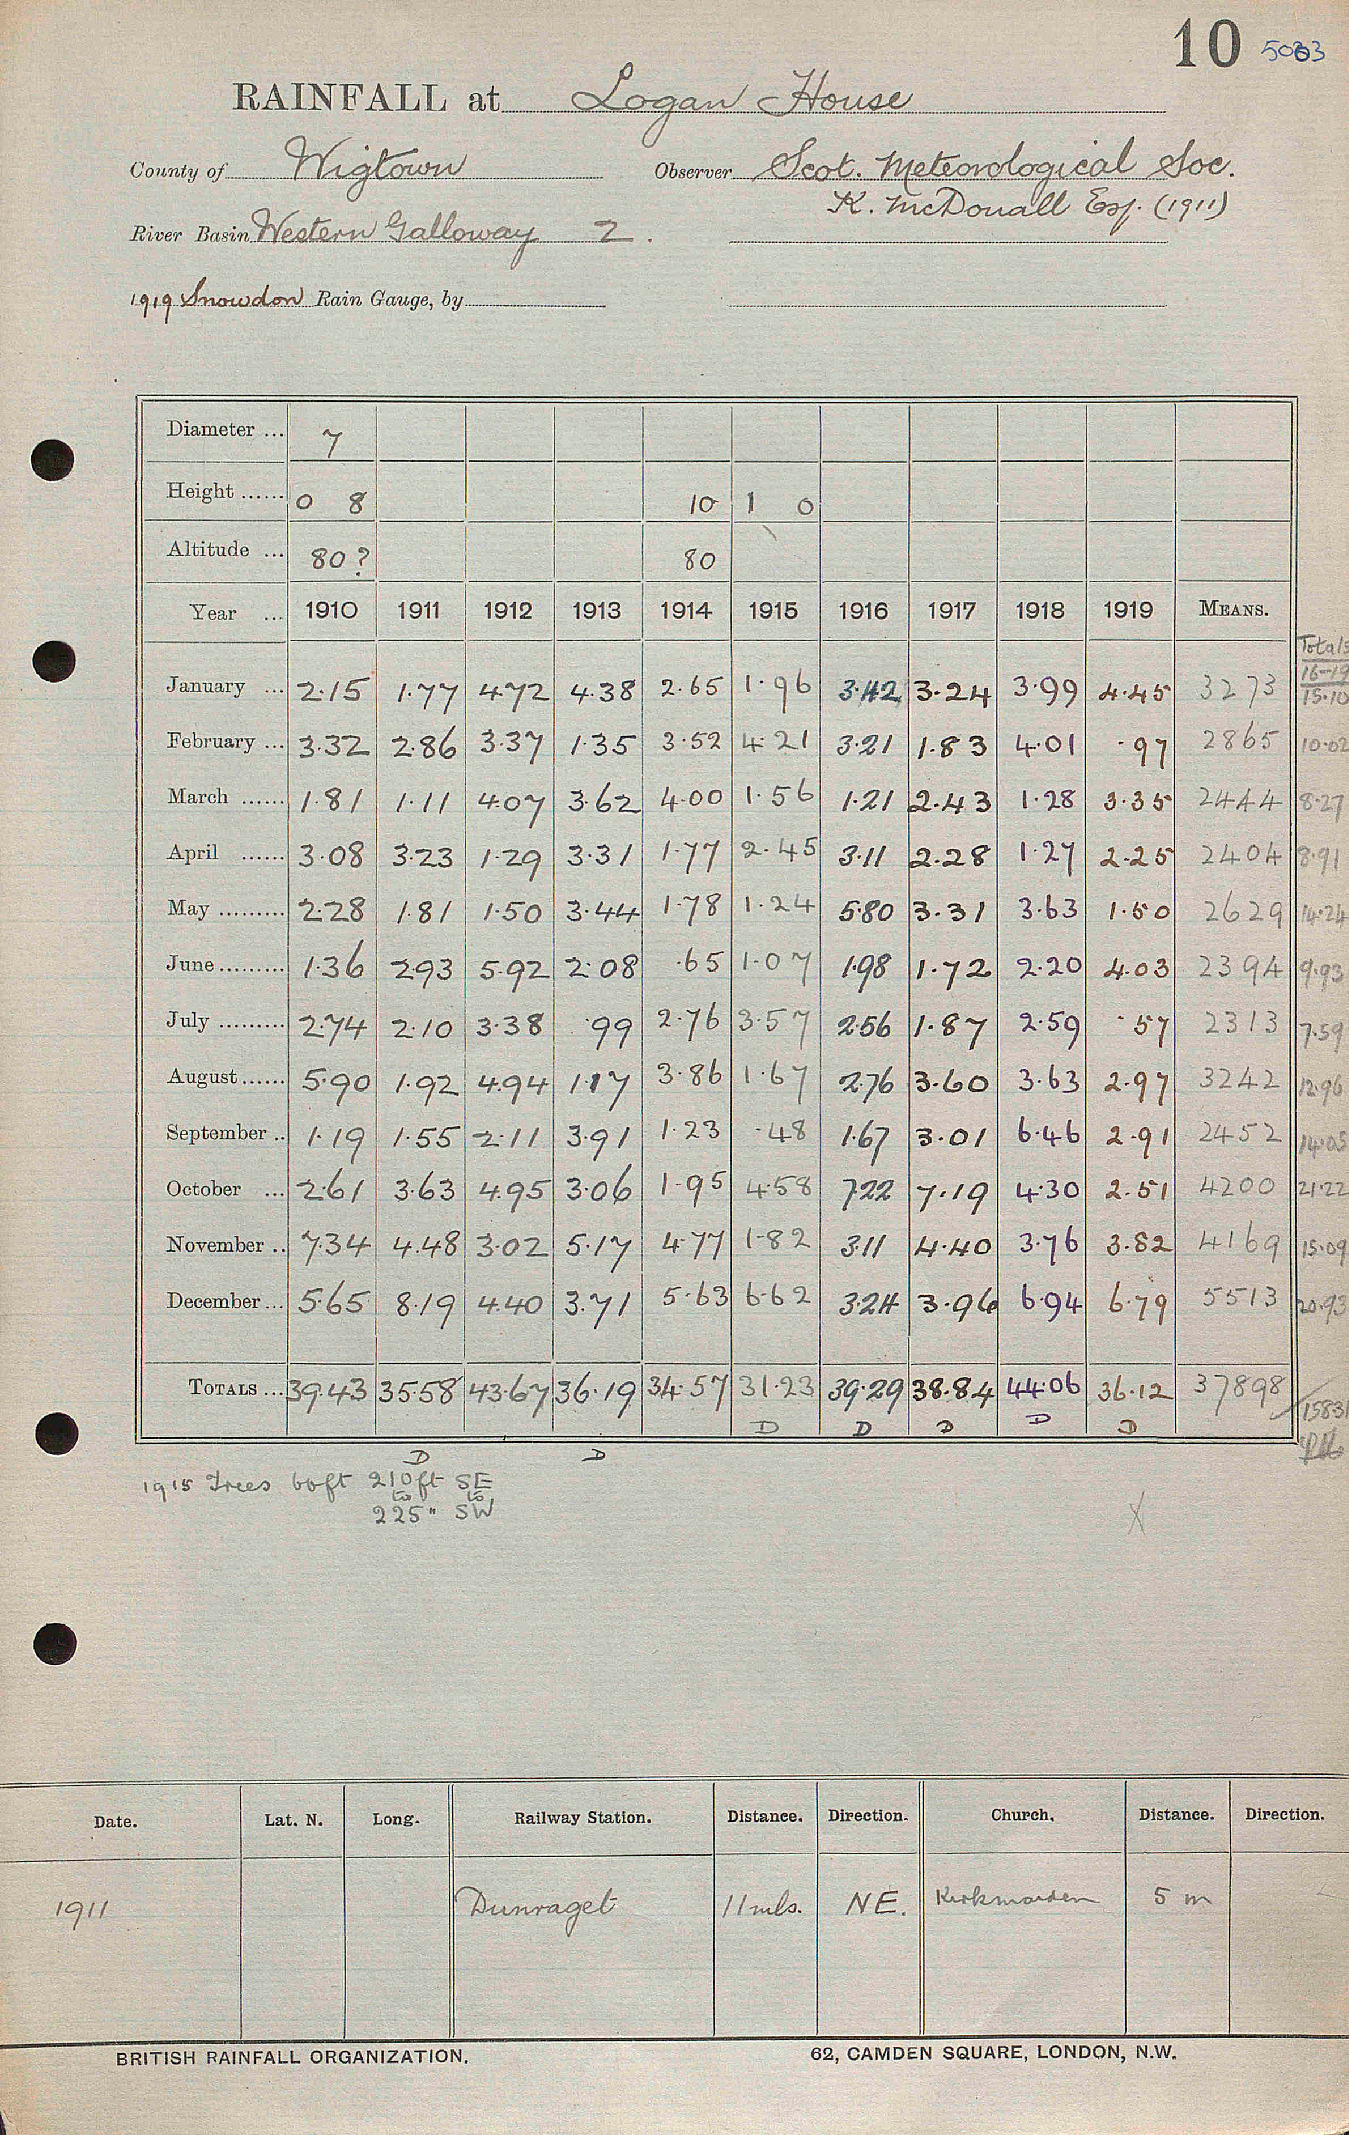 10 5033
RAINFALL at Logan House
County of Wigtown Observer Scot. Meteorological Soc.
K. McDouall Esq. (1911)
River Basin Western Galloway 2.
1919 Snowdon Rain Gauge, by
Diameter ... 7
Height ...... 0 8 10 1 0
Altitude ... 80? 80
Year ... 1910 1911 1912 1913 1914 1915 1916 1917 1918 1919 MEANS.
Totals
16-19
January ... 2.15 1.77 4.72 4.38 2.65 1.96 3.42 3.24 3.99 4.45 3273 15.10
February ... 3.32 2.86 3.37 1.35 3.52 4.21 3.21 1.83 4.01 .97 2865 10.02
March ...... 1.81 1.11 4.07 3.62 4.00 1.56 1.21 2.43 1.28 3.35 2444 8.27
April ...... 3.08 3.23 1.29 3.31 1.77 2.45 3.11 2.28 1.27 2.25 2404 8.91
May ......... 2.28 1.81 1.50 3.44 1.78 1.24 5.80 3.31 3.63 1.50 2629 14.24
June ......... 1.36 2.93 5.92 2.08 .65 1.07 1.98 1.72 2.20 4.03 2394 9.93
July ......... 2.74 2.10 3.38 .99 2.76 3.57 2.56 1.87 2.59 .57 2313 7.59
August ...... 5.90 1.92 4.94 1.17 3.86 1.67 2.76 3.60 3.63 2.97 3242 12.96
September .. 1.19 1.55 2.11 3.91 1.23 .48 1.67 3.01 6.46 2.91 2452 14.05
October ... 2.61 3.63 4.95 3.06 1.95 4.58 7.22 7.19 4.30 2.51 4200 21.22
November .. 7.34 4.48 3.02 5.17 4.77 1.82 3.11 4.40 3.76 3.82 4169 15.09
December ... 5.65 8.19 4.40 3.71 5.63 6.62 3.24 3.96 6.94 6.79 5513 20.93
TOTALS ... 39.43 35.58 43.67 36.19 34.57 31.23 39.29 38.84 44.06 36.12 37898 15831
D D D D D
D D
1915 Trees 60ft 210ft SE
to to
225" SW
X
Date. Lat. N. Long. Railway Station. Distance. Direction. Church. Distance. Direction.
1911 Dunraget 11 mls. NE. Kirkmaiden 5 m
BRITISH RAINFALL ORGANIZATION. 62, CAMDEN SQUARE, LONDON, N.W.